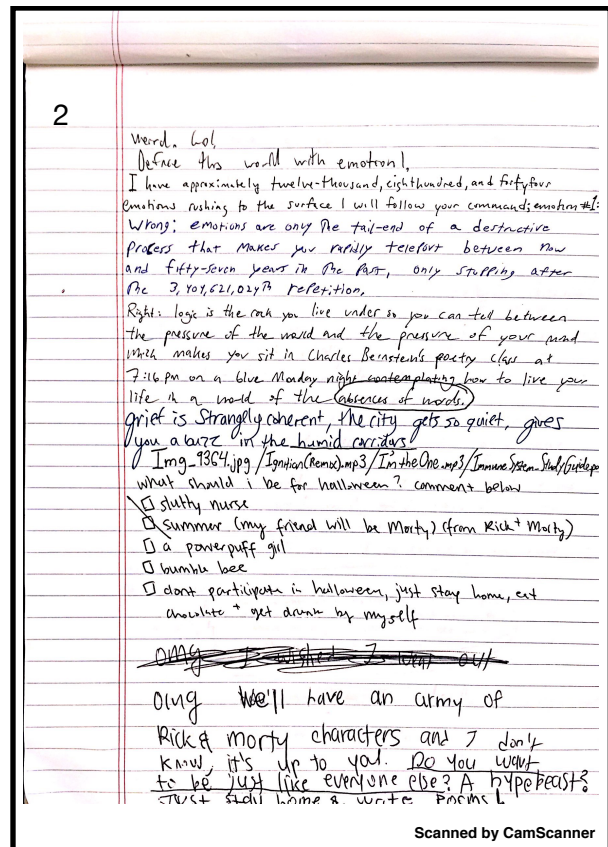 2
weird. Lol,
Deface this world with emotion!,
I have approximately twelve-thousand, eighthundred, and fortyfour
emotions rushing to the surface I will follow your command; emotion #1:
Wrong; emotions are only the tail-end of a destructive
process that makes you rapidly teleport between now
and fifty-seven years in the past, only stopping after
the 3,404,621,024th repetition.
Right: logic is the rock you live under so you can tell between
the pressure of the world and the pressure of your mind
which makes you sit in Charles Bernstein's poetry class at
7:16 pm on a blue Monday night contemplating how to live your
life in a world of the absences of words.
grief is strangely coherent, the city gets so quiet, gives
you a buzz in the humid corridors
Img_9364.jpg/Ignition(Remix).mp3/I'm the One.mp3/Immune System_StudyGuide.pd
what should i be for halloween? comment below
slutty nurse
summer (my friend will be Morty) (from Rick + Morty)
a powerpuff girl
bumble bee
dont participate in halloween, just stay home, eat
chocolate + get drunk by myself
omg I wished I went out
omg We'll have an army of
Rick & morty characters and I don't
know, it's up to you. Do you want
to be just like everyone else? A hypebeast?
Just stay home & write poems!
Scanned by CamScanner